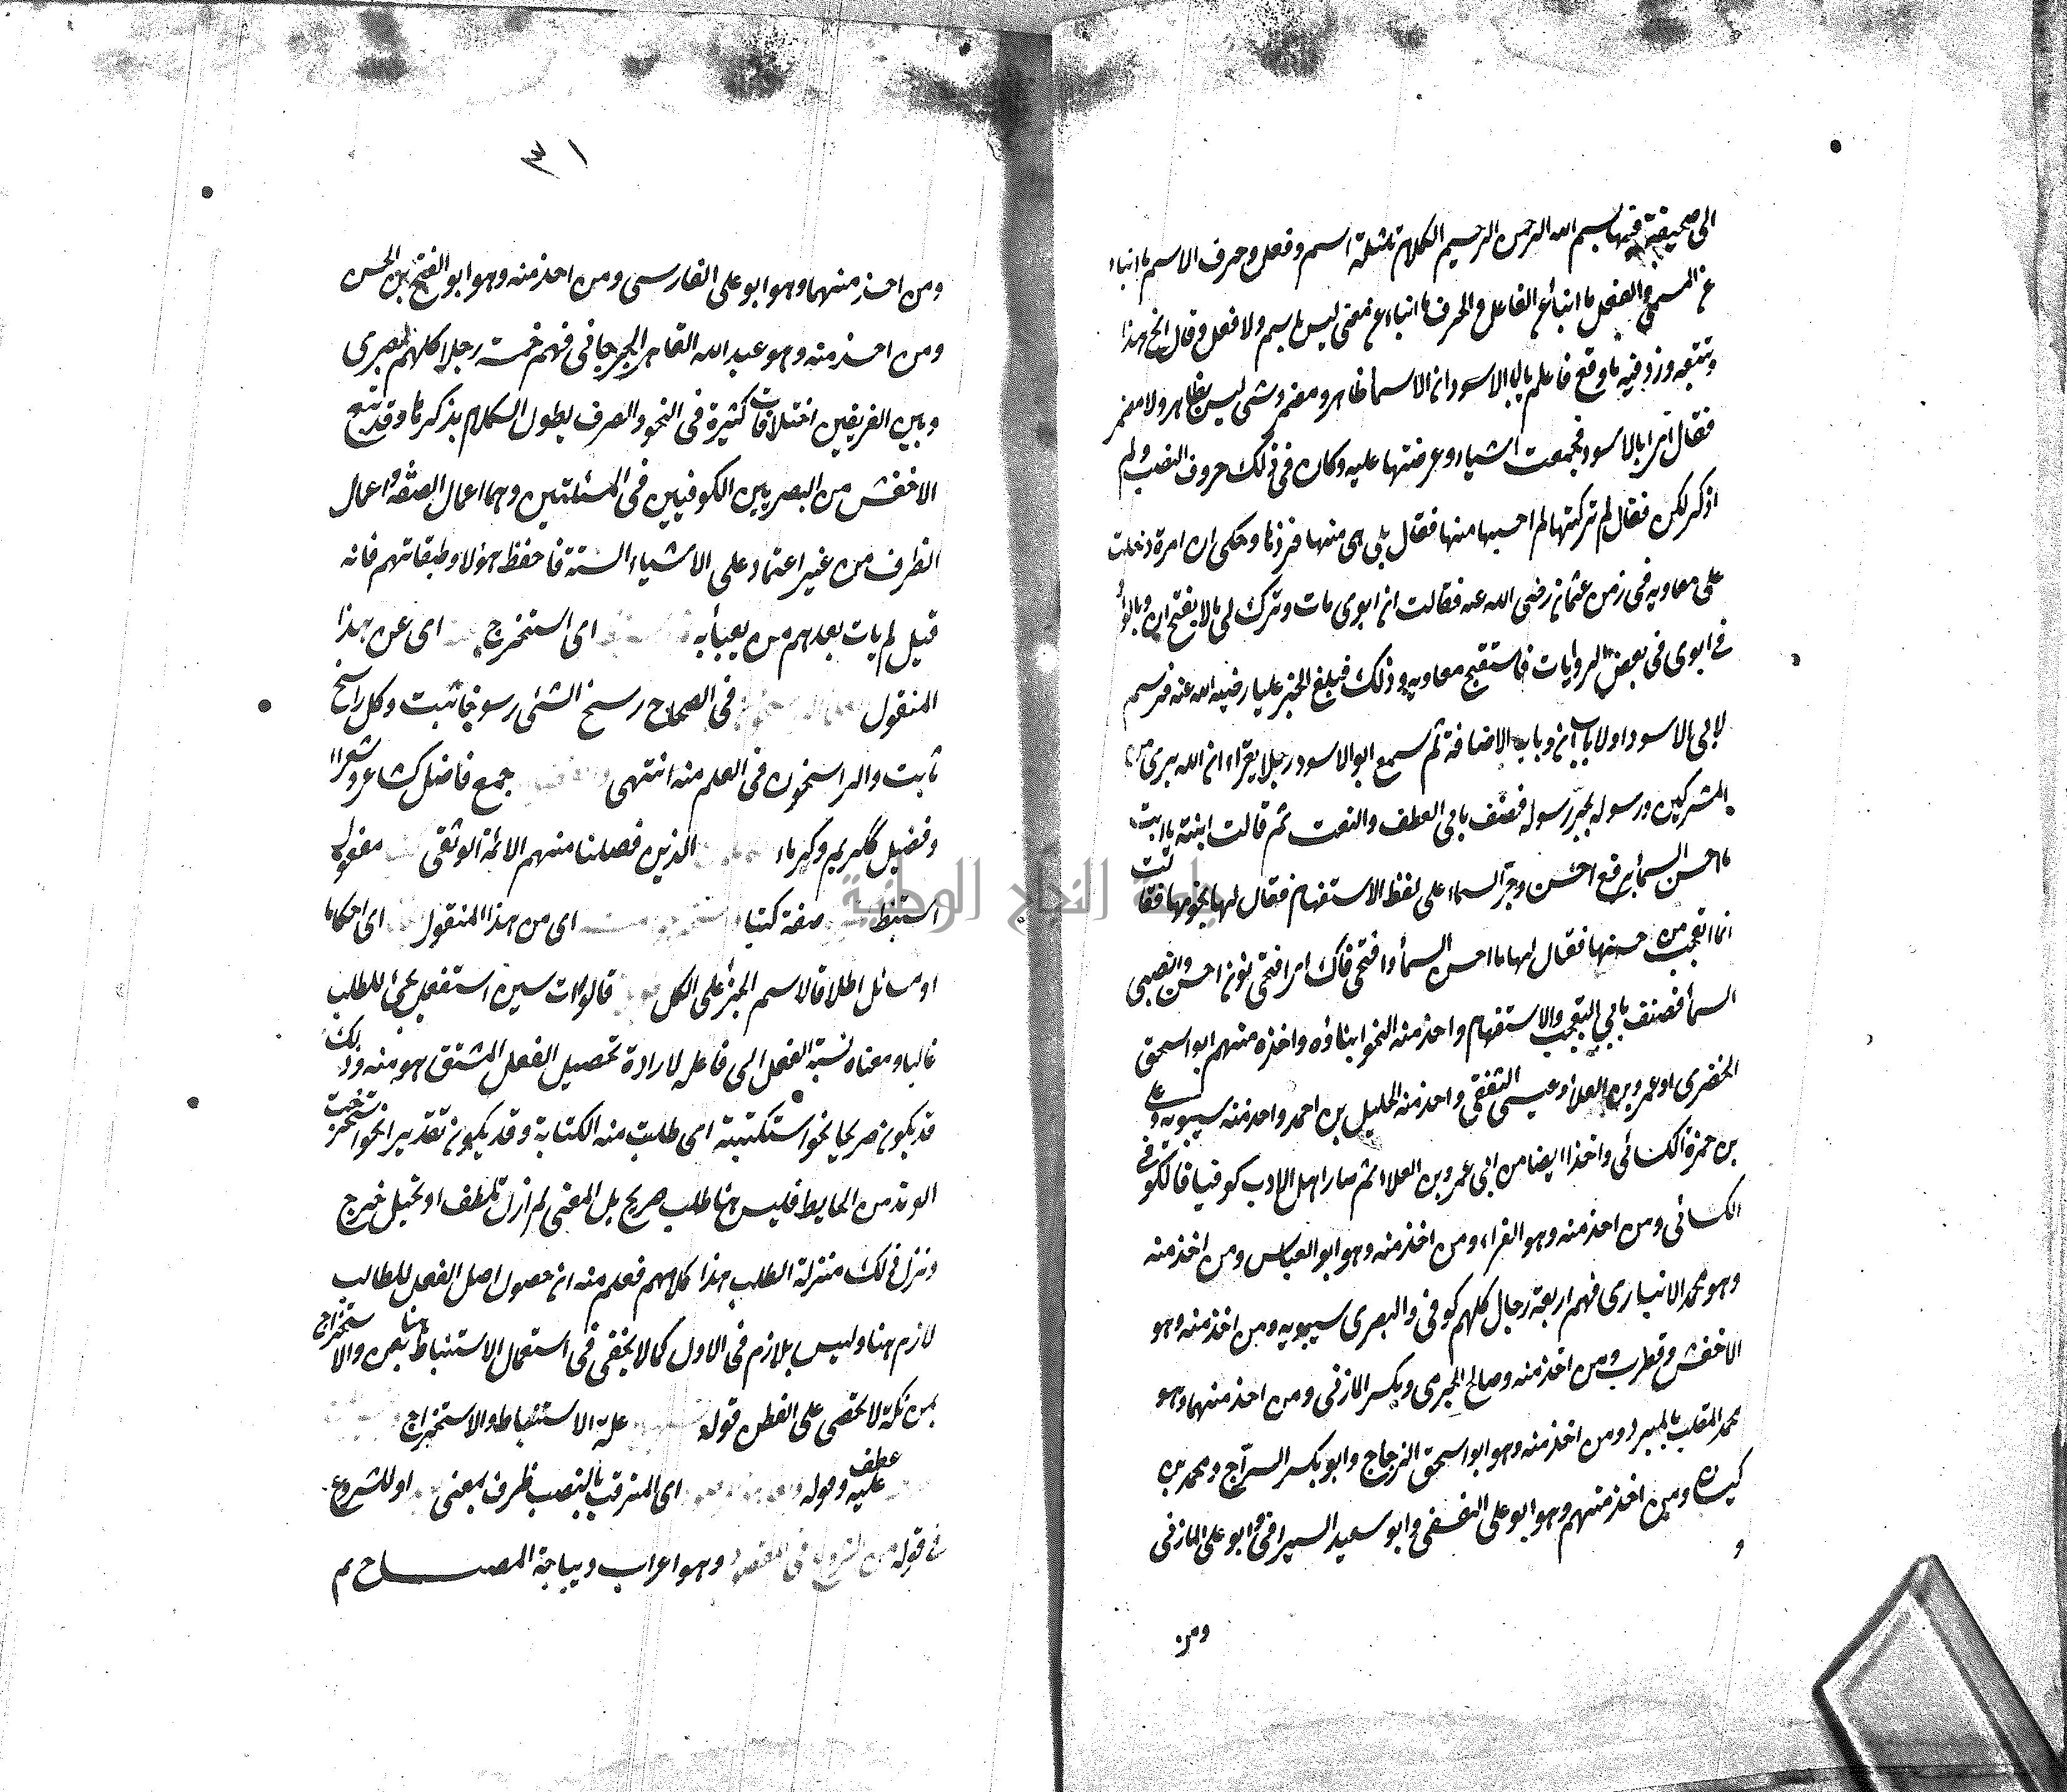 الى صحيفة فيها بسم الله الرحمن الرحيم الكلام ثلثة اسم وفعل وحرف الاسم ما انباء
عن المسمى والفعل ما انباء عن الفاعل والحرف ما انباء عن معنى ليس باسم ولا فعل وقال انح هذا
وتتبعه وزد فيه ما وقع فاعلم يا ابا الاسود ان الاسماء ظاهر ومضمر وشئ ليس بظاهر ولا مضمر
فقال ابا الاسود فجمعت اشياء وعرضتها عليه وكان فى ذلك حروف النصب ولم
اذكر لكن فقال لم تركتها لم احسبها منها فقال بلى هى منها فزدها وحكى ان امرة دخلت
على معاوية فى زمن عثمان رضى الله عنه فقالت ان ابوى مات وترك لى مالا بفتح ان وبالواو
فى ابوى فى بعض الروايات فاستقبح معاوية ذلك فبلغ الخبر عليا رضى الله عنه فرسم
لابى الاسود اولا باب ان وباب الاضافة ثم سمع ابو الاسود رجلا يقراء ان الله برى من
المشركين ورسوله بجر رسوله فصنف بابى العطف والنعت ثم قالت ابنته يا ابت
ما احسن السماء برفع احسن وجر السماء على لفظ الاستفهام فقال لها نجومها فقالت
انما اتعجب من حسنها فقال لها ما احسن السماء وافتحى فاك امرا فتحى نون احسن وانصبى
السماء فصنف بابى التعجب والاستفهام واخذ منه النحو ابناؤه واخذه منهم ابو اسحق
الحضرى او عمرو بن العلا وعيسى الثقفى واخذ منه الخليل بن احمد واخذ منه سيبويه وعلى
بن حمزة الكسائى واخذا ايضا من ابى عمرو بن العلاء ثم صار اهل الادب كوفيا فالكوفى
الكسائى ومن اخذ منه وهو الفراء ومن اخذ منه وهو ابو العباس ومن اخذ منه
وهو محمد الانبارى فهم اربعة رجال كلهم كوفى والبصرى سيبويه ومن اخذ منه وهو
الاخفش وقطرب ومن اخذ منه وصالح الجرمى وبكر المازنى ومن اخذ منهما وهو
محمد الملقب بالمبرد ومن اخذ منه وهو ابو اسحق الزجاج وابو بكر السراج ومحمد بن
كيسان ومن اخذ منهم وهو ابو على وابو سعيد السيرافى وابو على المازنى
ومن
٣١
ومن اخذ منهما وهو ابو على الفارسى ومن اخذ منه وهو ابو الفتح بن الحسن
ومن اخذ منه وهو عبد الله القاهر الجرجانى فهم خمسة رجلا كلهم بصرى
وبين الفريقين اختلافات كثيرة فى النحو والصرف يطول الكلام بذكرها وقد تبع
الاخفش من البصريين الكوفيين فى المسئلتين وهما اعمال الصفة واعمال
الظرف من غير اعتماد على الاشياء الستة فاحفظ هؤلاء وطبقاتهم فانه
قيل لم يات بعدهم من يعبأ به اى استخرج اى عن هذا
المنقول فى الصحاح رسخ الشئ رسوخا ثبت وكل راسخ
ثابت والراسخون فى العلم منه انتهى جمع فاضل كشاعر وشعراء
وفضيل ككريم وكرماء الذين فصلنا منهم الائمة الوثقى مفعول
استنبط صفة كتبا اى من هذا المنقول اى احكاما
او مسائل اطلاقا لاسم الجزء على الكل قالوا ات سين استفعل يجئ للطلب
غالبا ومعناه نسبة الفعل الى فاعله لارادة تحصيل الفعل المشتق هو منه وذلك
قد يكون صريحا نحو استكتبته اى طلبت منه الكتابة وقد يكون تقديرا نحو استخرجت
الوتد من الحايط فليس هنا طلب صريح بل المعنى لم ازل تلطف او تحيل خرج
ونزل ذلك منزلة الطلب هذا كلامهم فعلم منه ان حصول اصل الفعل للطالب
لازم هنا وليس بلازم فى الاول كما لا يخفى فى استعمال الاستنباط هنا بعن والاستخراج
بمن نكتة لا تخفى على الفطن قوله علة الاستنباط والاستخراج
عطف عليه وقوله اى المترقب بالنصب ظرف بمعنى او للشروع
فى قوله من الشروع فى المقصود وهو اعراب ديباجة المصباح تم